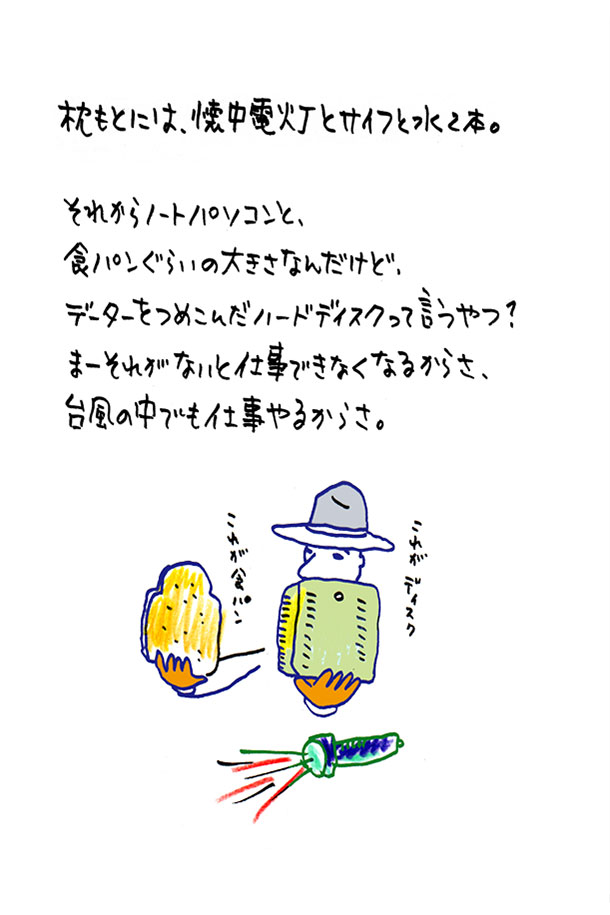 枕もとには、懐中電灯とサイフと水2本。
それからノートパソコンと、
食パンぐらいの大きさなんだけど、
データーをつめこんだハードディスクって言うやつ?
まーそれがないと仕事できなくなるからさ、
台風の中でも仕事やるからさ。
これがディスク
これが食パン